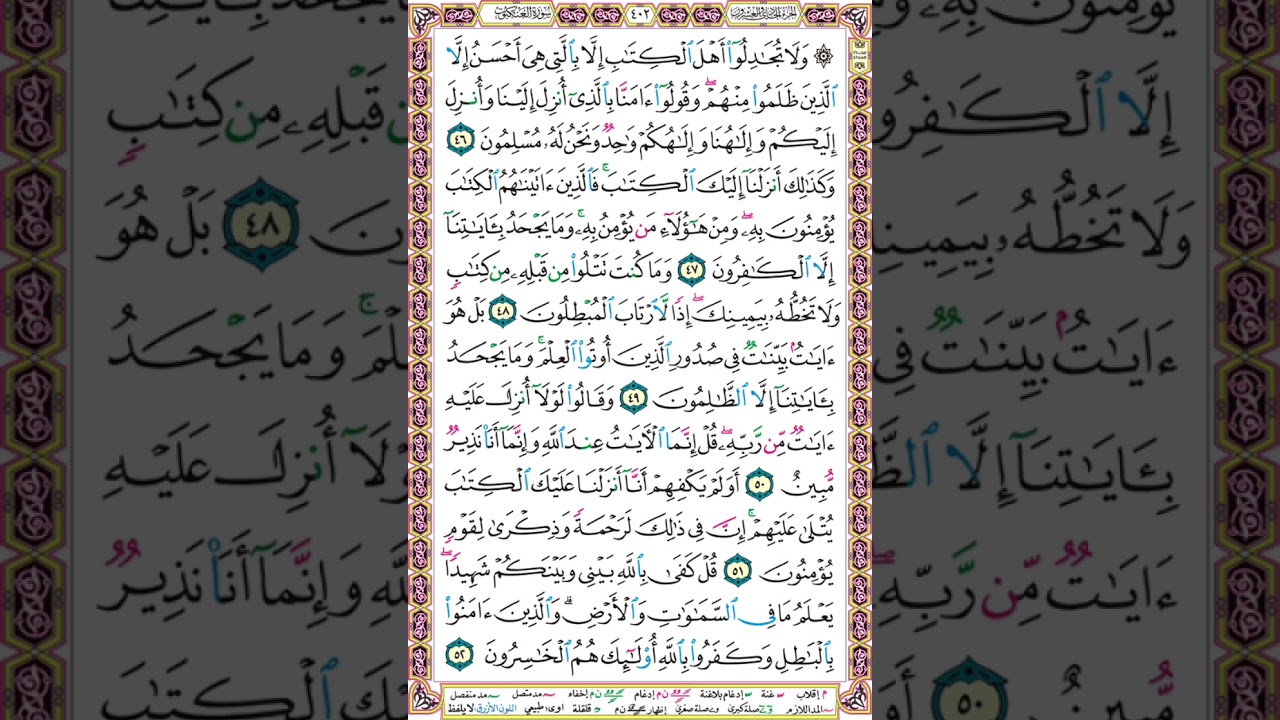 سورة العنكبوت
٤٠٢
الجزء الحادي والعشرون
۞ وَلَا تُجَٰدِلُوٓا۟ أَهْلَ ٱلْكِتَٰبِ إِلَّا بِٱلَّتِى هِىَ أَحْسَنُ إِلَّا
ٱلَّذِينَ ظَلَمُوا۟ مِنْهُمْ ۖ وَقُولُوٓا۟ ءَامَنَّا بِٱلَّذِىٓ أُنزِلَ إِلَيْنَا وَأُنزِلَ
إِلَيْكُمْ وَإِلَٰهُنَا وَإِلَٰهُكُمْ وَٰحِدٌ وَنَحْنُ لَهُۥ مُسْلِمُونَ ٤٦
وَكَذَٰلِكَ أَنزَلْنَآ إِلَيْكَ ٱلْكِتَٰبَ ۚ فَٱلَّذِينَ ءَاتَيْنَٰهُمُ ٱلْكِتَٰبَ
يُؤْمِنُونَ بِهِۦ ۖ وَمِنْ هَٰٓؤُلَآءِ مَن يُؤْمِنُ بِهِۦ ۚ وَمَا يَجْحَدُ بِـَٔايَٰتِنَآ
إِلَّا ٱلْكَٰفِرُونَ ٤٧ وَمَا كُنتَ تَتْلُوا۟ مِن قَبْلِهِۦ مِن كِتَٰبٍ
وَلَا تَخُطُّهُۥ بِيَمِينِكَ ۖ إِذًا لَّٱرْتَابَ ٱلْمُبْطِلُونَ ٤٨ بَلْ هُوَ
ءَايَٰتٌۢ بَيِّنَٰتٌ فِى صُدُورِ ٱلَّذِينَ أُوتُوا۟ ٱلْعِلْمَ ۚ وَمَا يَجْحَدُ
بِـَٔايَٰتِنَآ إِلَّا ٱلظَّٰلِمُونَ ٤٩ وَقَالُوا۟ لَوْلَآ أُنزِلَ عَلَيْهِ
ءَايَٰتٌ مِّن رَّبِّهِۦ ۖ قُلْ إِنَّمَا ٱلْءَايَٰتُ عِندَ ٱللَّهِ وَإِنَّمَآ أَنَا۠ نَذِيرٌ
مُّبِينٌ ٥٠ أَوَلَمْ يَكْفِهِمْ أَنَّآ أَنزَلْنَا عَلَيْكَ ٱلْكِتَٰبَ
يُتْلَىٰ عَلَيْهِمْ ۚ إِنَّ فِى ذَٰلِكَ لَرَحْمَةً وَذِكْرَىٰ لِقَوْمٍ
يُؤْمِنُونَ ٥١ قُلْ كَفَىٰ بِٱللَّهِ بَيْنِى وَبَيْنَكُمْ شَهِيدًا ۖ
يَعْلَمُ مَا فِى ٱلسَّمَٰوَٰتِ وَٱلْأَرْضِ ۗ وَٱلَّذِينَ ءَامَنُوا۟
بِٱلْبَٰطِلِ وَكَفَرُوا۟ بِٱللَّهِ أُو۟لَٰٓئِكَ هُمُ ٱلْخَٰسِرُونَ ٥٢
م إقلاب غنة إدغام بلاغنة ن م إدغام ن م إخفاء مد متصل مد منفصل
المد اللازم صلة كبرى صلة صغرى إظهار ن م قلقلة اوى: طبيعي اللون الأزرق: لا يلفظ